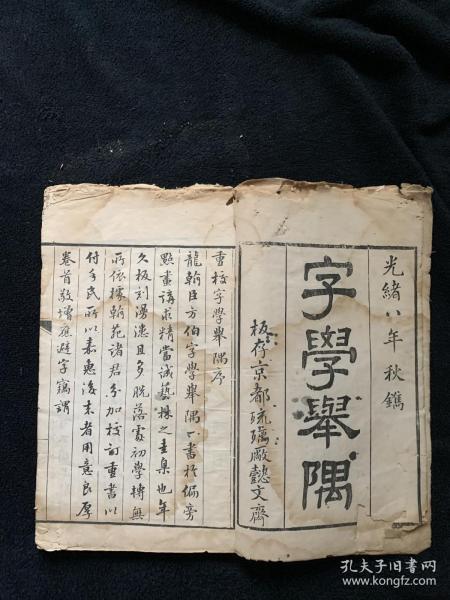 光緒八年秋鐫
字學舉隅
板存京都琉璃廠懿文齋
重校字學舉隅序
龍翰臣方伯字學舉隅一書於偏旁
點畫講求精當誠藝林之圭臬也年
久板刻漫漶且多脫落處初學轉無
所依據翰苑諸君分加校訂重書以
付手民所以嘉惠後末者用意良厚
卷首敬增應避字竊謂
孔夫子旧书网
www.kongfz.com